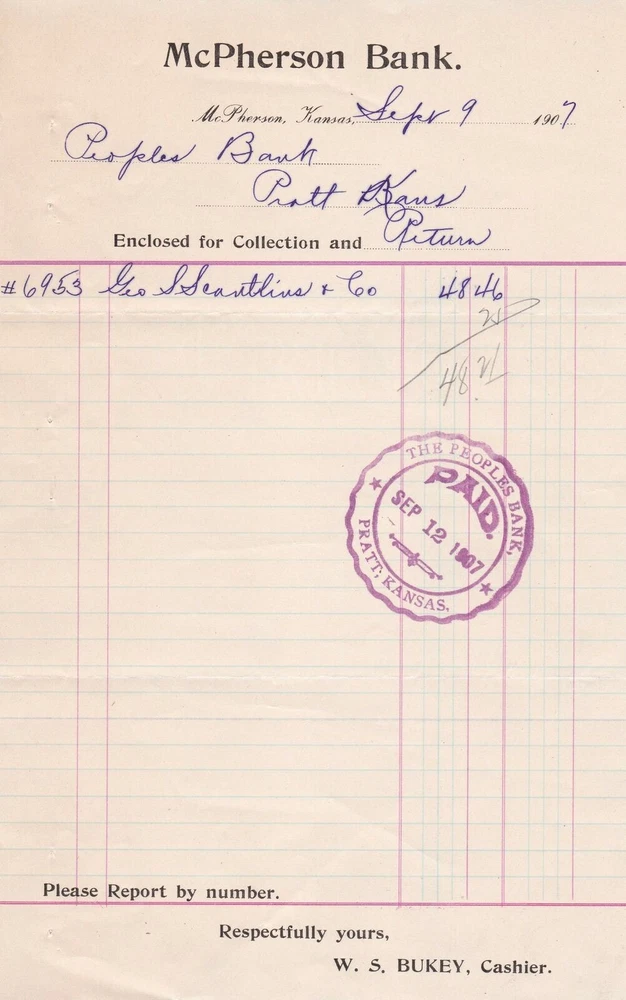 McPherson Bank.
McPherson, Kansas, Sept 9 1907
Peoples Bank
Pratt Kans
Enclosed for Collection and Return
#6953 Geo S Scantlins & Co 48 46
25
48 21
THE PEOPLES BANK,
PAID.
SEP 12 1907
PRATT, KANSAS.
Please Report by number.
Respectfully yours,
W. S. BUKEY, Cashier.